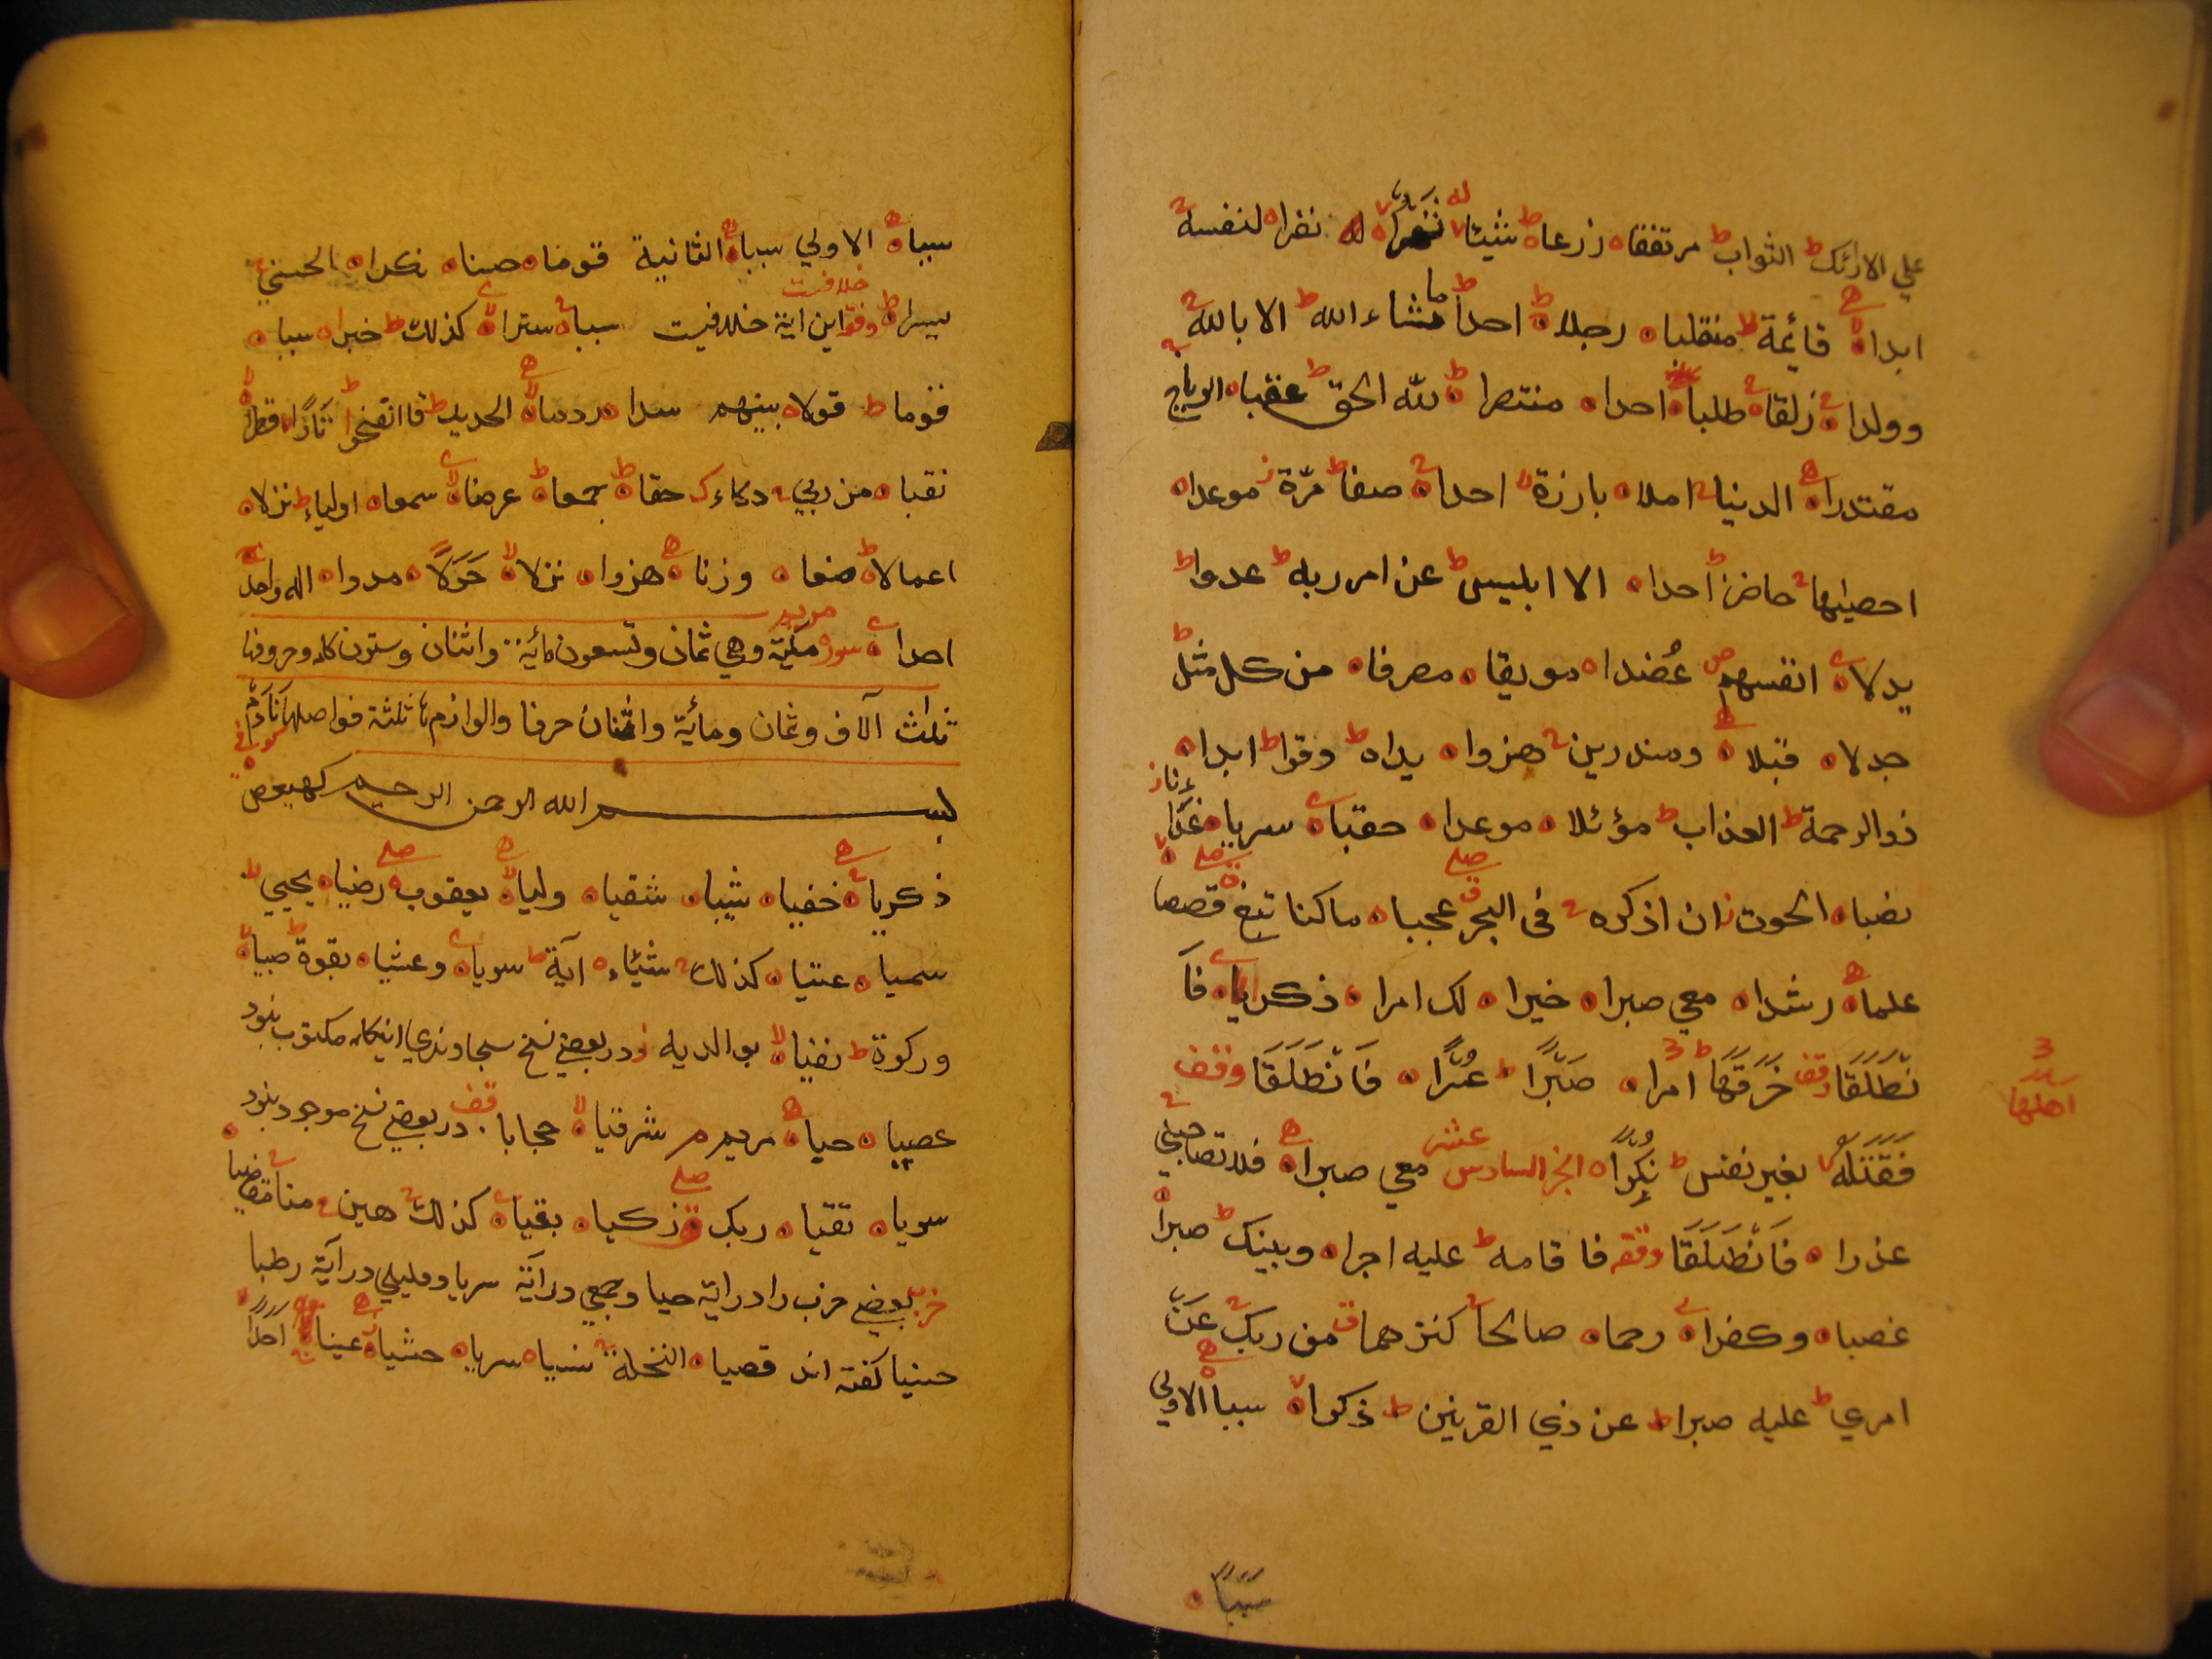 علي الارائک ط الثواب ط مرتفقا زرعا ط شيئا لا نهرا له نفرا لنفسه
ابدا قائمة منقلبا رجلا احدا ماشاء الله ط الا بالله
وولدا زلقا طلبا احدا منتصرا ط لله الحق ط عقبا الرياح
مقتدرا الدنيا املا بارزة احدا صفا ط مرّة ز موعدا
احصيها حاضرا ط احدا الا ابليس ط عن امر ربه ط عدوا ط
بدلا انفسهم ص عُضدا موبقا مصرفا من كل مثل ط
جدلا قبلا ومنذرين هزوا يداه ط وقرا ط ابدا
ذوالرحمة ط العذاب ط موئلا موعدا حقبا سربا غَدَا
نضبا الحوت ان اذكره فى البحر ق عجبا ماكنا نبغ قصصا
علما رشدا معي صبرا خبرا لک امرا ذكرا فَا
نْطَلَقَا وقف خَرَقَهَا ط امرا صَبْرًا عُسْرًا فَانْطَلَقَا وقف
اهلها
فَقَتَلَهُ بغير نفس ط نُكْرًا الجز السادس عشر معي صبرا فلا تصاحبني
عذرا فَانْطَلَقَا وقفه فاقامه ط عليه اجرا وبينک ط صبرا
غصبا وكفرا رحما صالحا كنزهما ق من ربک عَنْ
امري ط عليه صبرا ط عن ذي القرنين ط ذكرا سببا الاولي
سَبَبًا
سببا الاولي سببا الثانية قوما حسنا نكرا الحسني
يسرا ط وقف اين اية خلافيت خلافيست سببا سترا كذلک ط خبرا سببا
قوما ط قولا بينهم سدا ردما الحديد ط قا انفخوا ط نَارًا قطرا
نقبا من ربي دكاء ک حقا ط جمعا ط عرضا سمعا اولياء ط نزلا
اعمالا ط صنعا وزنا هزوا نزلا حِوَلًا مددا اله واحد
احدا سوره مريم مكية وهي ثمان وتسعون مائية واثنان وستون كلمه وحروفها
ثلاث آلاف وثمان ومائية واثنان حرفا والوازم تا ثلثة فواصلها
بسم الله الرحمن الرحيم كهيعص
ذكريا خفيا شيبا شقيا وليا يعقوب صلى رضيا يحيي ط
سميا عتيا كذلک شيئاء آية ط سويا وعشيا بقوة ط صبيا
وزكوة ط تقيا بوالديه ز در بعضي نسخ سجاوندي اينكله مكتوب بنود
عصيا حيا مريم م شرقيا حجابا قف در بعضي نسخ موجود بنود
سويا تقيا ربک ق صلى زكيا بغيا كذلک هين منا مقضيا
حزب بعضي حزب را در اية حيا وجمعي در آية سريا ومليلي در آية رطبا
جنيا كفته اند قصيا النخلة نسيا سريا جنيا عينا احدا